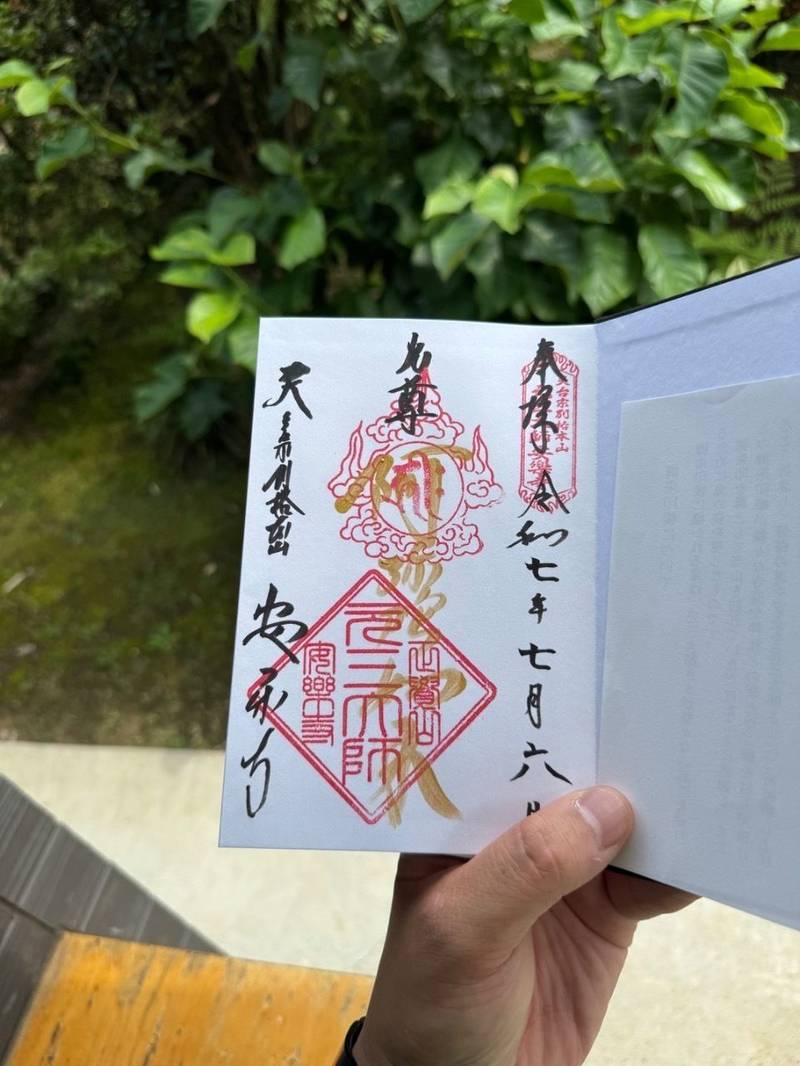 奉拝 令和七年七月六日
天台宗別格本山
本尊
阿弥陀如来
元三大師
安樂寺
天台宗別格本山
安楽寺